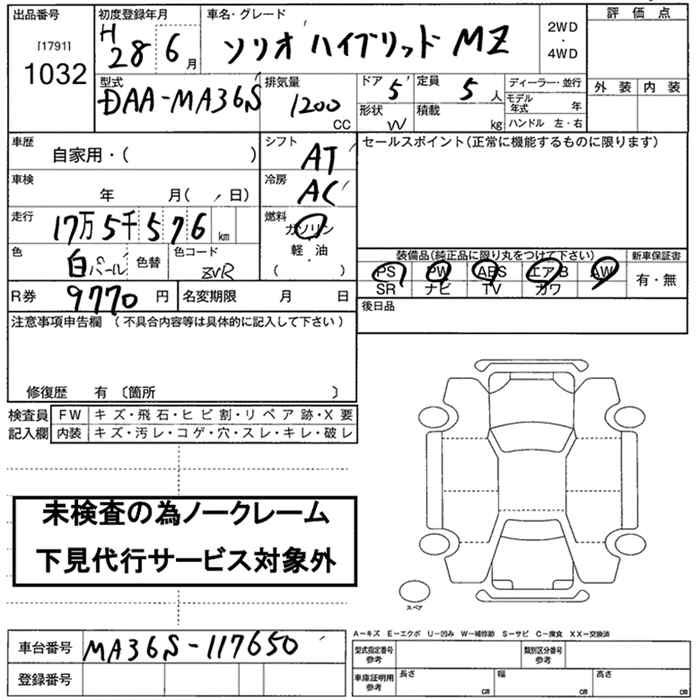 出品番号 初度登録年月 車名・グレード 2WD 評価点
[1791] H 28 6 月 ソリオ ハイブリッド MZ ・
1032 4WD
型式 排気量 ドア 5 定員 5 人 ディーラー・並行 外装 内装
DAA-MA36S 1200 CC 形状 W 積載 kg モデル年式 年
ハンドル 左・右
車歴 自家用・( ) シフト AT セールスポイント(正常に機能するものに限ります)
車検 年 月( 日) 冷房 AC
走行 17万5千576 km 燃料 ガソリン
色 白パール 色替 色コード ZVR 軽・油 装備品(純正品に限り丸をつけて下さい) 新車保証書
・ PS PW ABS エアB AW 有・無
( ) SR ナビ TV カワ
R券 9770 円 名変期限 月 日 後日品
注意事項申告欄 (不具合内容等は具体的に記入して下さい)
修復歴 有 〔箇所 〕
検査員 FW キズ・飛石・ヒビ割・リペア跡・X要
記入欄 内装 キズ・汚レ・コゲ・穴・スレ・キレ・破レ
未検査の為ノークレーム
下見代行サービス対象外
スペア
A-キズ E-エクボ U-凹み W-補修跡 S-サビ C-腐食 XX-交換済
車台番号 MA36S-117650 型式指定番号 参考 類別区分番号 参考
登録番号 車庫証明用 参考 長さ cm 幅 cm 高さ cm